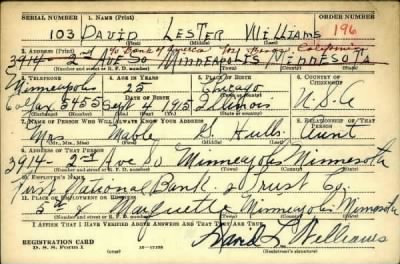 SERIAL NUMBER 1. NAME (Print)
103 DAVID LESTER WILLIAMS 196
(First) (Middle) (Last)
2. ADDRESS (Print)
% Bank of America California
3914 - 2nd AVE SO MINNEAPOLIS MINNESOTA
3. TELEPHONE 4. AGE IN YEARS 5. PLACE OF BIRTH 6. COUNTRY OF CITIZENSHIP
Minneapolis 25 Chicago
DATE OF BIRTH
Colfax 5455 Sept 4 1915 Illinois U.S.A
7. NAME OF PERSON WHO WILL ALWAYS KNOW YOUR ADDRESS 8. RELATIONSHIP OF THAT PERSON
Mrs Mable G. Hulls Aunt
9. ADDRESS OF THAT PERSON
3914 - 2nd Ave So Minneapolis Minnesota
10. EMPLOYER'S NAME
First National Bank & Trust Co.
11. PLACE OF EMPLOYMENT OR BUSINESS
5th & Marquette Minneapolis Minnesota
I AFFIRM THAT I HAVE VERIFIED ABOVE ANSWERS AND THAT THEY ARE TRUE.
REGISTRATION CARD
D. S. S. Form 1
David L Williams
(Registrant's signature)